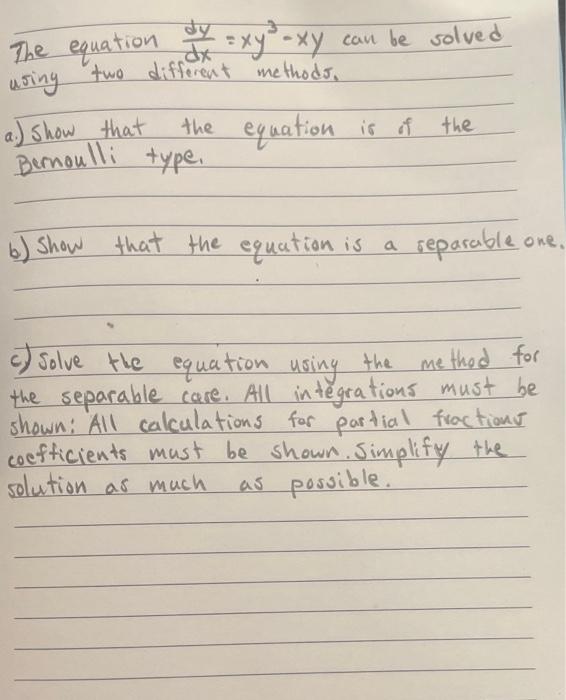 The equation dy/dx = xy³-xy can be solved
using two different methods.
a.) Show that the equation is of the
Bernoulli type.
b) Show that the equation is a separable one.
c) Solve the equation using the method for
the separable case. All integrations must be
shown; All calculations for partial fractions
coefficients must be shown. Simplify the
solution as much as possible.